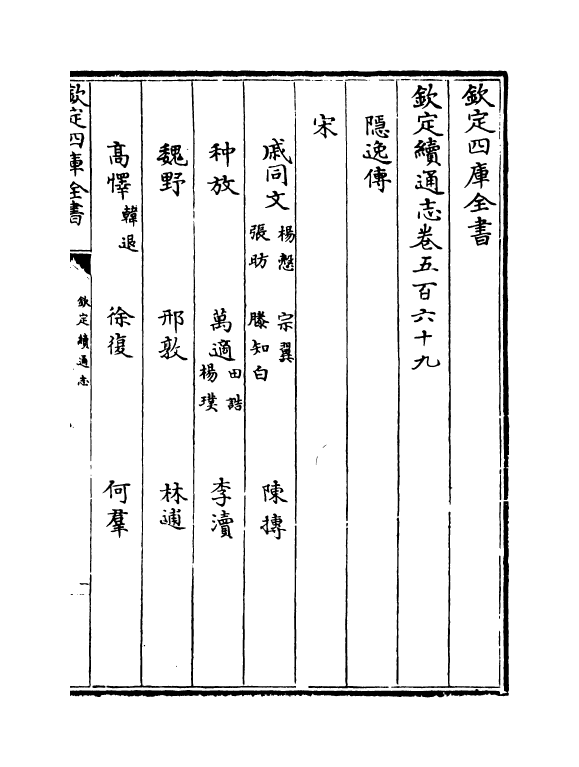 欽定四庫全書
欽定續通志卷五百六十九
隱逸傳
宋
戚同文 楊慤 張昉 宗翼 滕知白 陳摶
种放 萬適 田誥 楊璞 李瀆
魏野 邢敦 林逋
高懌 韓退 徐復 何羣
欽定四庫全書 欽定續通志 一